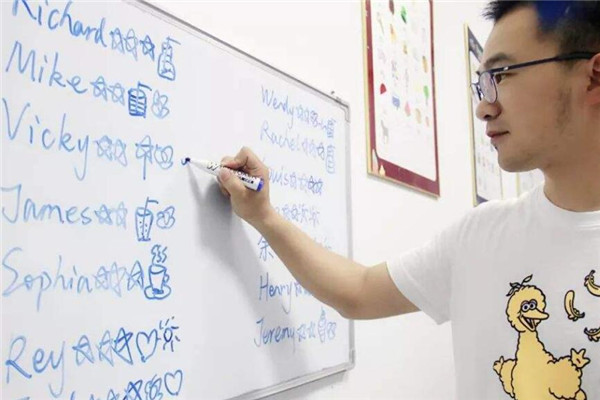 Richard
Mike
Vicky
James
Sophia
Rey
Wendy
Rachel
Henry
Jeremy